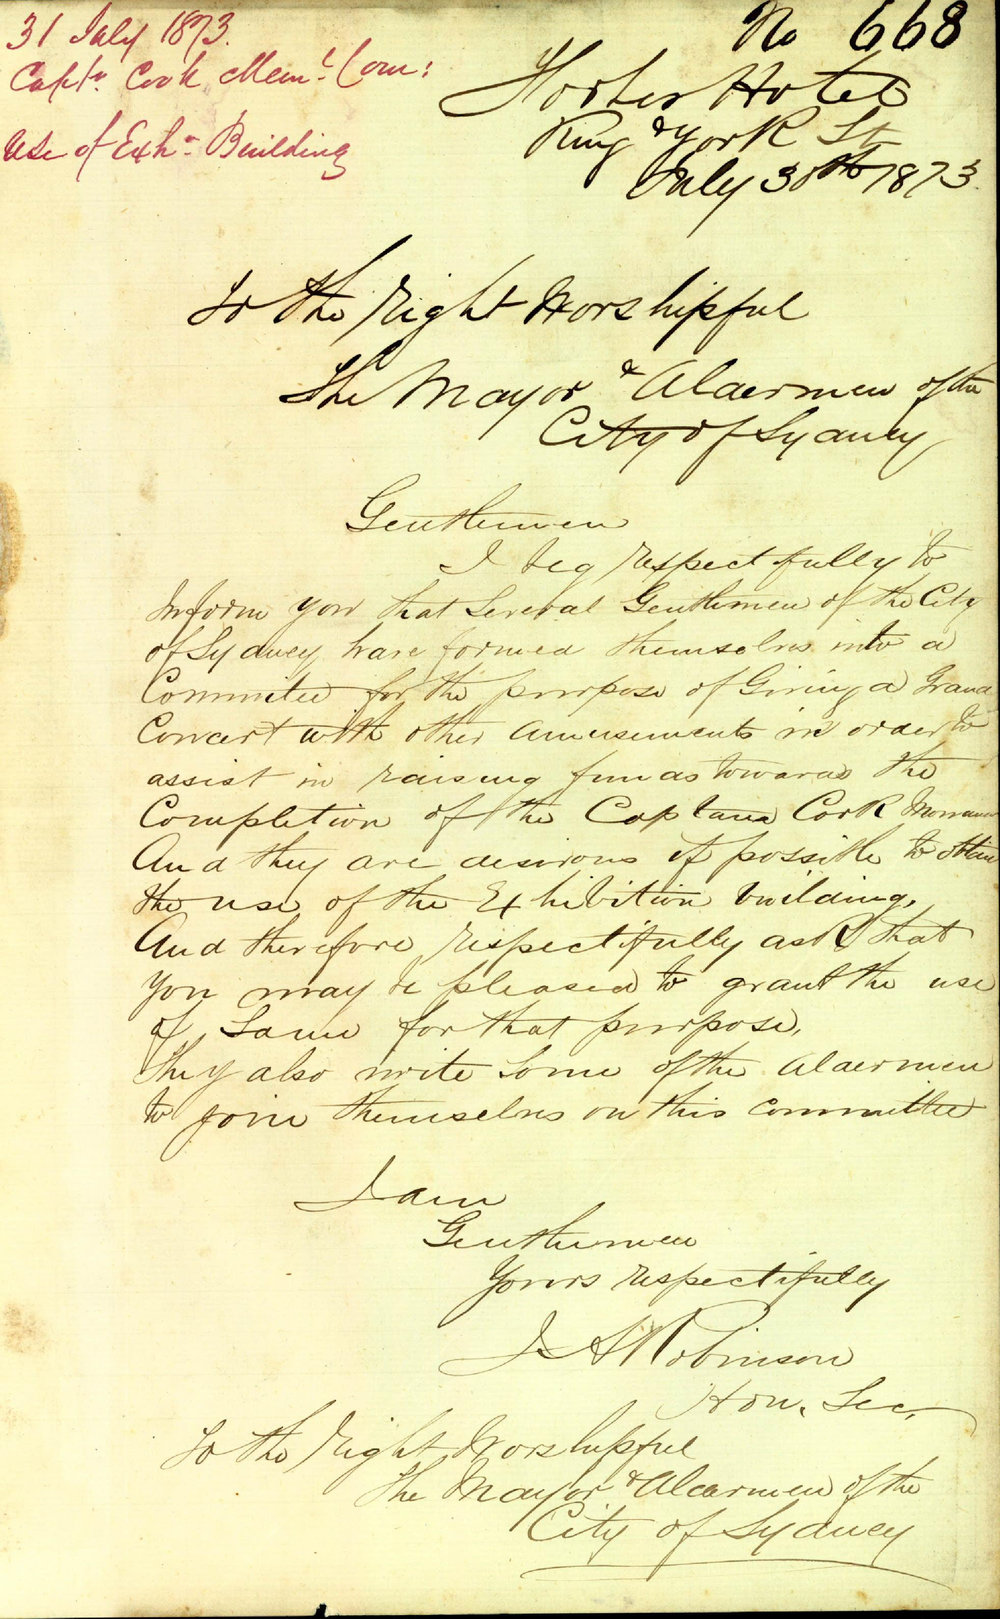 31 July 1873.
Capt.n Cook Mem.l Com:
Use of Exh.n Building
No 668
Hotel
King & York St
July 30th 1873.
To the Right Worshipful
The Mayor & Aldermen of the
City of Sydney
Gentlemen
I beg respectfully to
inform you that Several Gentlemen of the City
of Sydney have formed themselves into a
Committee for the purpose of Giving a Grand
Concert with other amusements in order to
assist in raising funds towards the
Completion of the Captain Cook
And they are desirous if possible to obtain
the use of the Exhibition building.
And therefore respectfully ask that
you may be pleased to grant the use
of Same for that purpose.
They also invite Some of the Aldermen
to join themselves on this Committee
I am
Gentlemen
Yours respectfully
J A Robinson
Hon. Sec.
To the Right Worshipful
The Mayor & Aldermen of the
City of Sydney